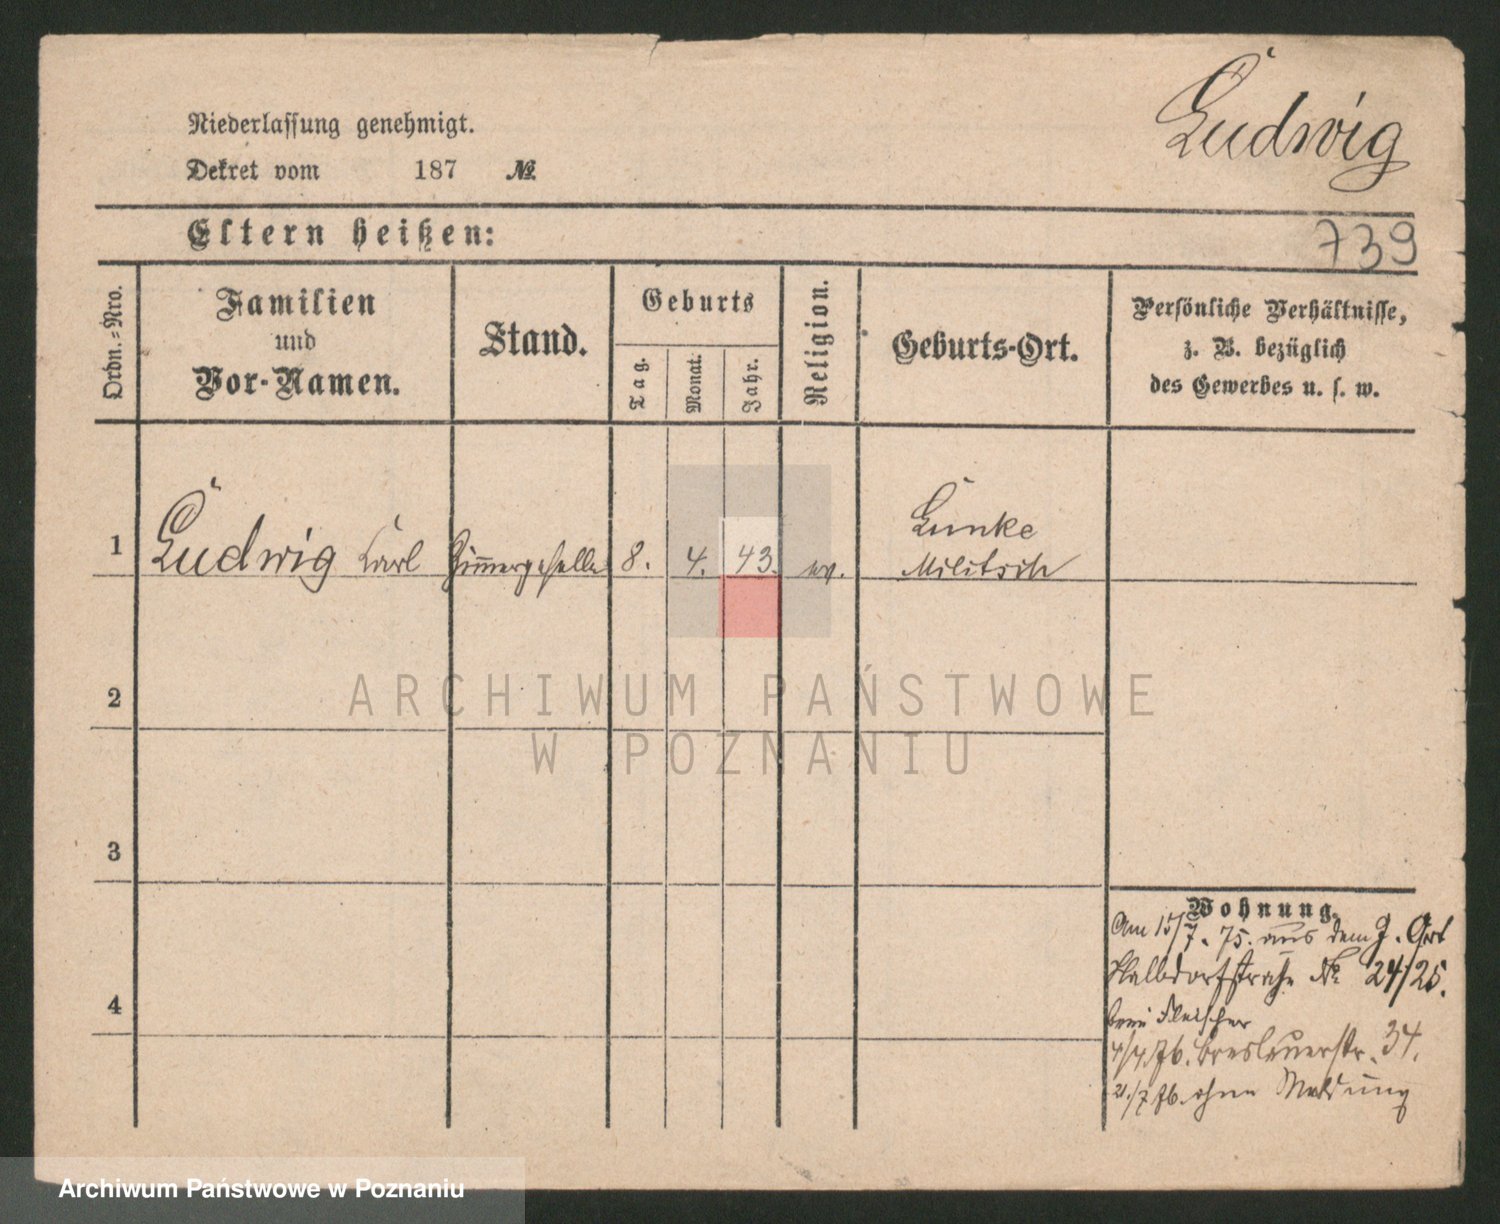 Ludwig
Niederlassung genehmigt.
Dekret vom 187 №
Eltern heißen:
739
Ordn.=Nro.
Familien
und
Vor-Namen.
Stand.
Geburts
Tag.
Monat.
Jahr.
Religion.
Geburts-Ort.
Persönliche Verhältnisse,
z. B. bezüglich
des Gewerbes u. s. w.
1 Ludwig Carl Zimmergeselle 8. 4. 43. ev.
Lunke
Militsch
2
3
4
Wohnung.
Am 15/7. 75. aus dem J. Ort
Halbdorfstraße № 24/25.
beim Fleischer
4/4.76. Breslauerstr. 34.
21./7 76. ohne Meldung
ARCHIWUM PAŃSTWOWE
W POZNANIU
Archiwum Państwowe w Poznaniu